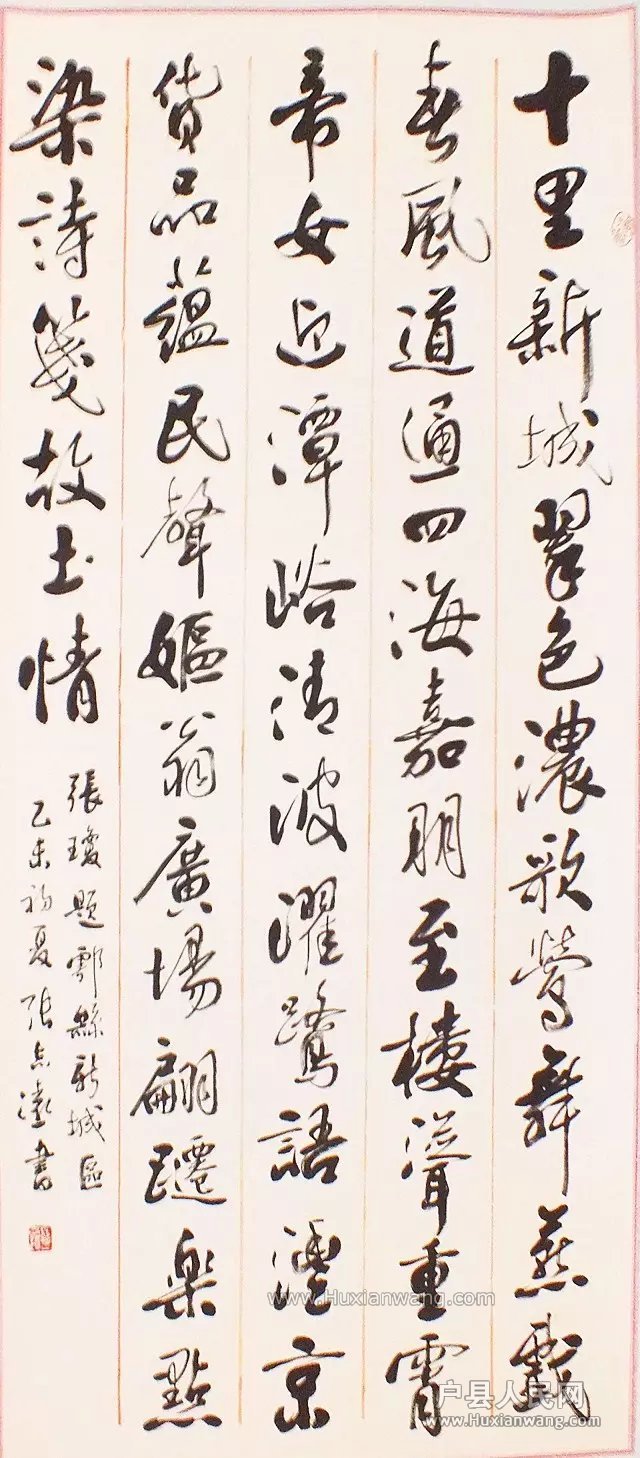 十里新城翠色濃歌鶯舞燕戲
春風道通四海嘉朋至樓聳重霄
帝女近潭峪清波濯鷺語灃京
貨品蘊民聲嫗翁廣場翩躚樂點
染詩箋故土情
張瓊題鄠縣新城區
乙未初夏張書
www.Huxianwang.com
户县人民网
www.Huxianwang.com